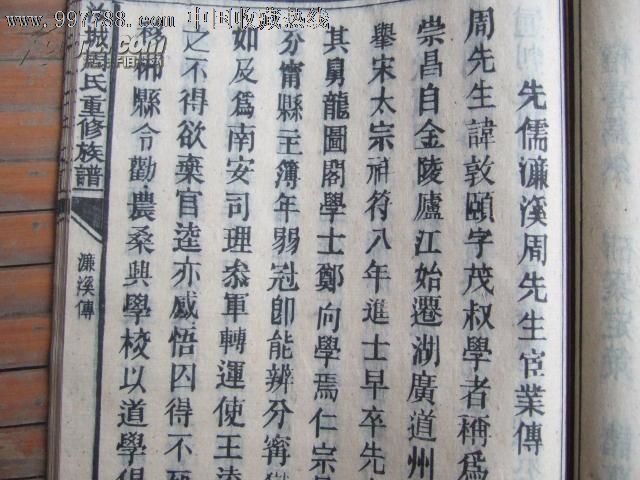 www.997788.com 中国收藏热线
先儒濂溪周先生宦業傳
周先生諱敦頤字茂叔學者稱爲
崇昌自金陵廬江始遷湖廣道州
舉宋太宗祥符八年進士早卒先
其舅龍圖閣學士鄭向學焉仁宗
分甯縣主簿年弱冠卽能辨分甯
如及爲南安司理叅軍轉運使王逵
之不得欲棄官逵亦感悟囚得不
郴縣令勸農桑興學校以道學
氏重修族譜
濂溪傳